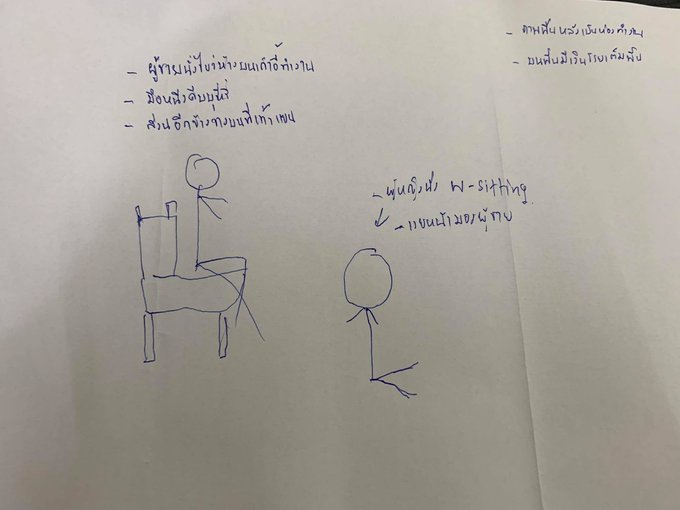 - ผู้ชายนั่งไขว่ห้างบนเก้าอี้ทำงาน
- มือหนึ่งคีบบุหรี่
- ส่วนอีกข้างวางบนที่เท้าแขน
- ภาพพื้นหลังเป็นห้องทำงาน
- บนพื้นมีเงินโรยเต็มพื้น
- ผู้หญิงนั่ง w-sitting
- เงยหน้ามองผู้ชาย